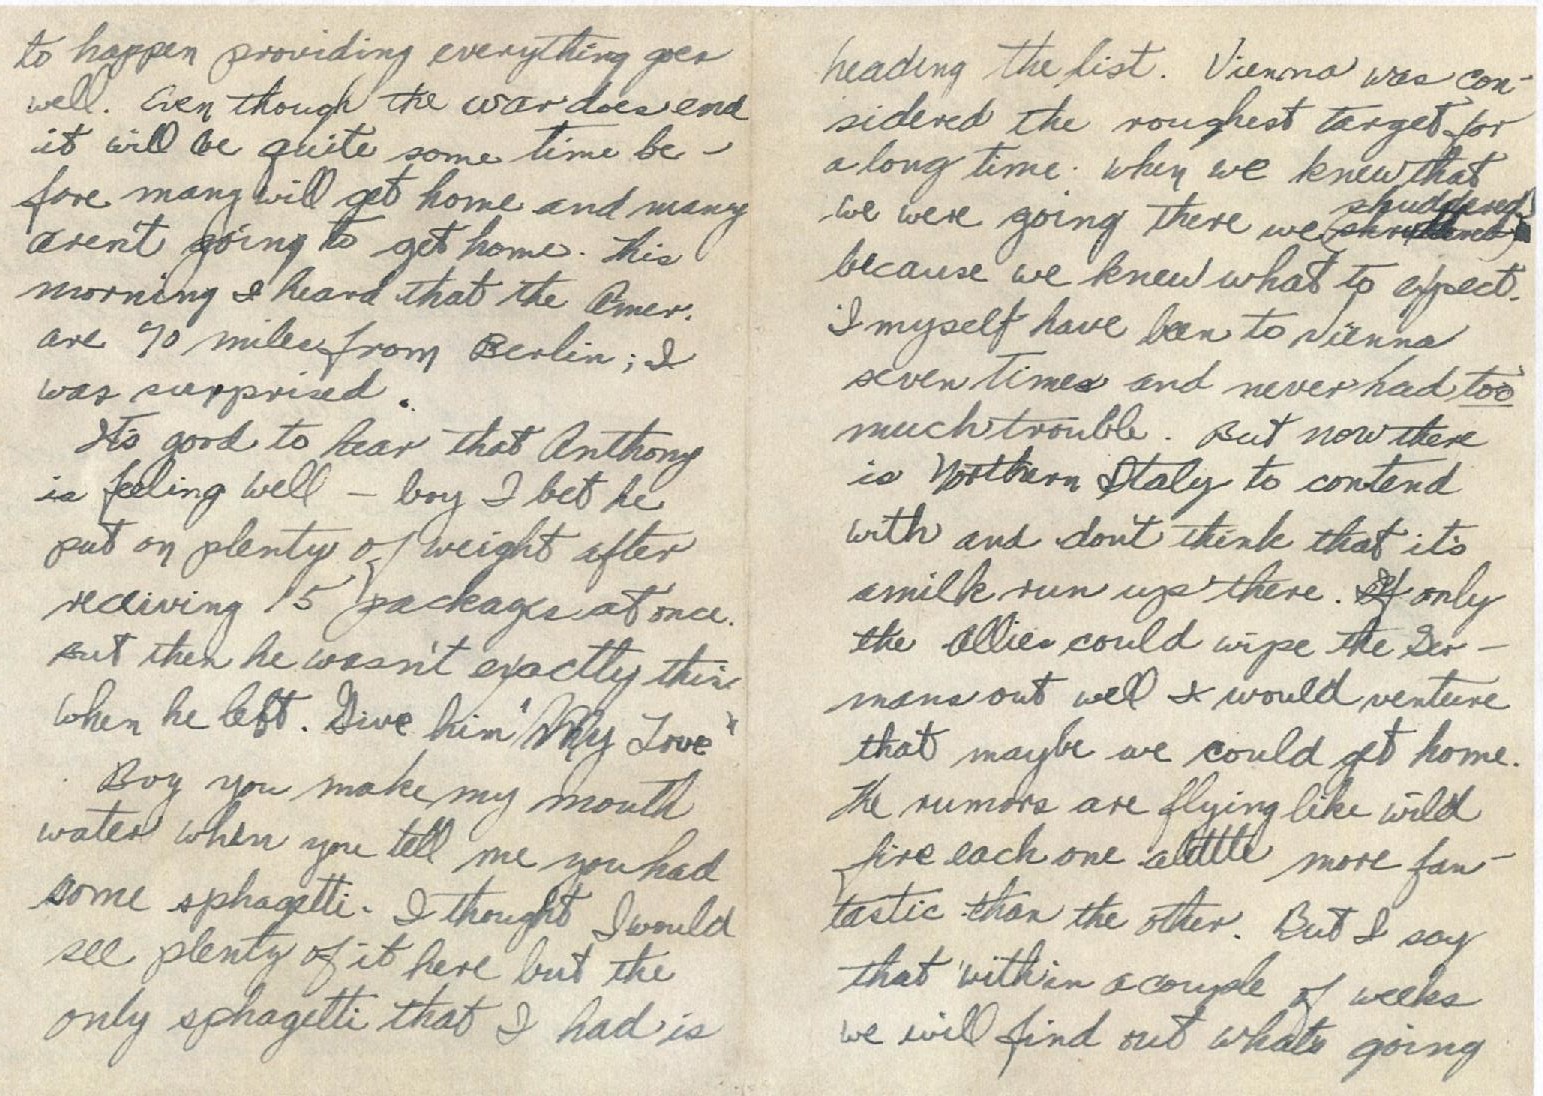 to happen providing everything goes
well. Even though the war does end
it will be quite some time be-
fore many will get home and many
aren't going to get home. This
morning I heard that the Amer.
are 70 miles from Berlin; I
was surprised.
It's good to hear that Anthony
is feeling well - boy I bet he
put on plenty of weight after
reciving 15 packages at once.
But then he wasn't exactly thin
when he left. Give him "My Love"
Boy you make my mouth
water when you tell me you had
some sphagetti. I thought I would
see plenty of it here but the
only sphagetti that I had is
heading the list. Vienna was con-
sidered the roughest target for
a long time. When we knew that
we were going there we shuddered
because we knew what to expect.
I myself have been to Vienna
seven times and never had too
much trouble. But now there
is Northern Italy to contend
with and don't think that it's
a milk run up there. If only
the Allies could wipe the Ger-
mans out well I would venture
that maybe we could get home.
The rumors are flying like wild
fire each one a little more fan-
tastic than the other. But I say
that within a couple of weeks
we will find out whats going